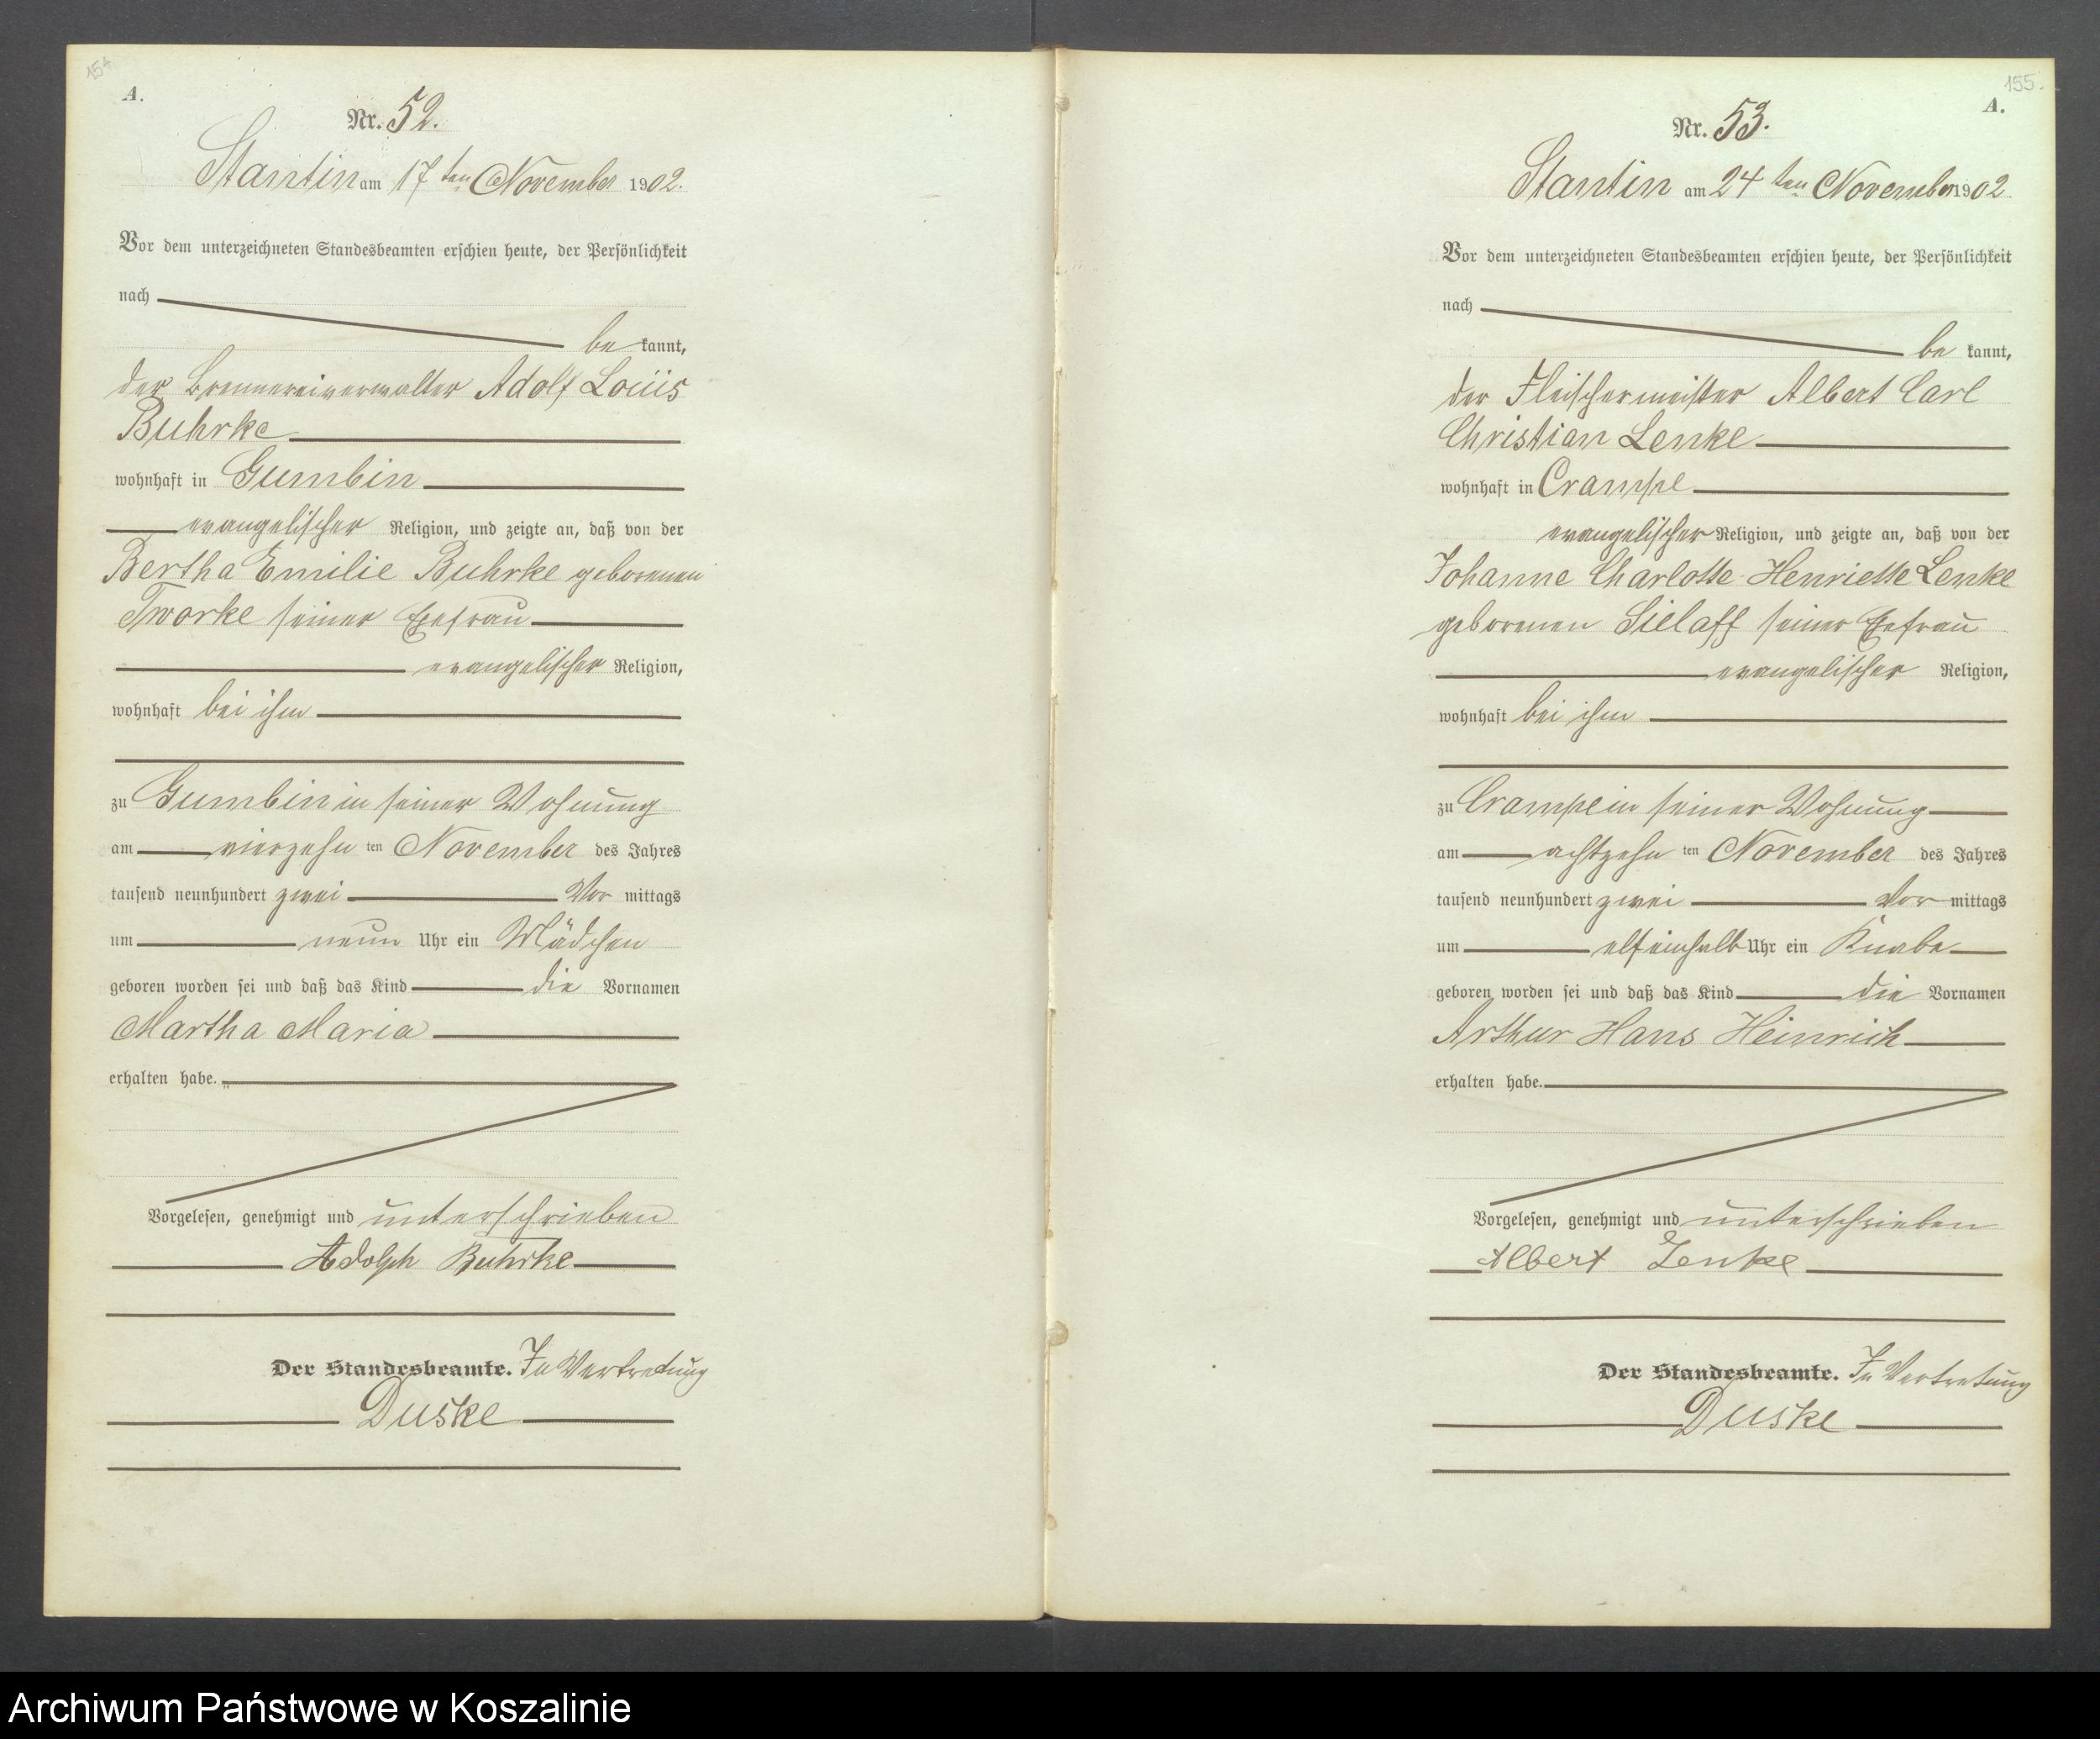 154
A.
Nr. 52.
Stantin am 17ten November 1902.
Vor dem unterzeichneten Standesbeamten erschien heute, der Persönlichkeit
nach
be kannt,
der Brennereiverwalter Adolf Louis
Buhrke
wohnhaft in Gumbin
evangelischer Religion, und zeigte an, daß von der
Bertha Emilie Buhrke geborenen
Tworke seiner Ehefrau
evangelischer Religion,
wohnhaft bei ihm
zu Gumbin in seiner Wohnung
am vierzehn ten November des Jahres
tausend neunhundert zwei Vor mittags
um neun Uhr ein Mädchen
geboren worden sei und daß das Kind die Vornamen
Martha Maria
erhalten habe.
Vorgelesen, genehmigt und unterschrieben
Adolph Buhrke
Der Standesbeamte. In Vertretung
Duske
155.
A.
Nr. 53.
Stantin am 24ten November 1902
Vor dem unterzeichneten Standesbeamten erschien heute, der Persönlichkeit
nach
be kannt,
der Fleischermeister Albert Carl
Christian Lenke
wohnhaft in Crampe
evangelischer Religion, und zeigte an, daß von der
Johanne Charlotte Henriette Lenke
geborenen Sielaff seiner Ehefrau
evangelischer Religion,
wohnhaft bei ihm
zu Crampe in seiner Wohnung
am achtzehn ten November des Jahres
tausend neunhundert zwei Vor mittags
um elfeinhalb Uhr ein Knabe
geboren worden sei und daß das Kind die Vornamen
Arthur Hans Heinrich
erhalten habe.
Vorgelesen, genehmigt und unterschrieben
Albert Lenke
Der Standesbeamte. In Vertretung
Duske
Archiwum Państwowe w Koszalinie